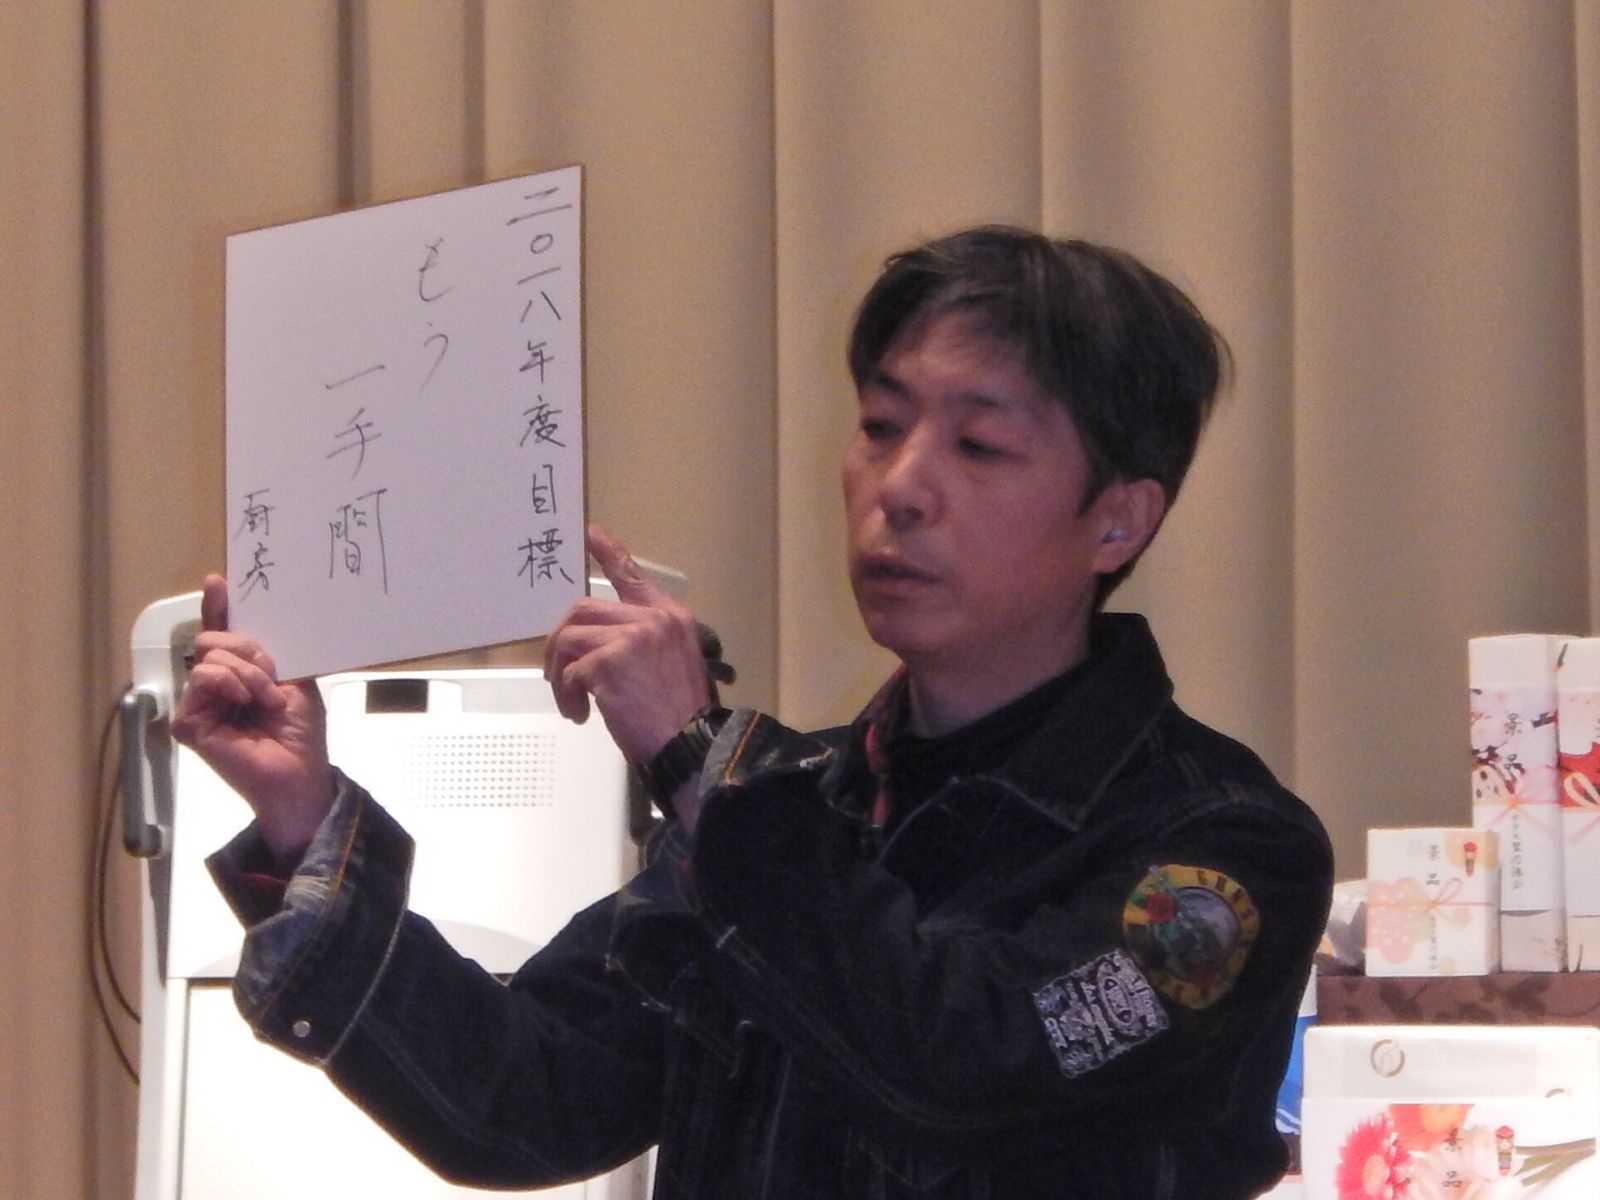 二〇一八年度目標
もう
一手間
厨房
GUNS
景品
景品
景品